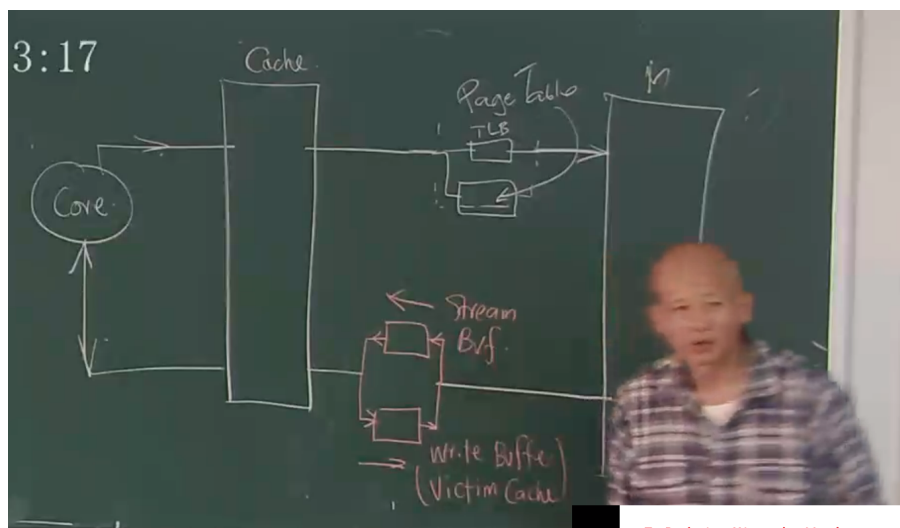 3:17
Cache.
Page Table
M
TLB
Core.
Stream
Buf.
Write Buffe
(Victim Cache)